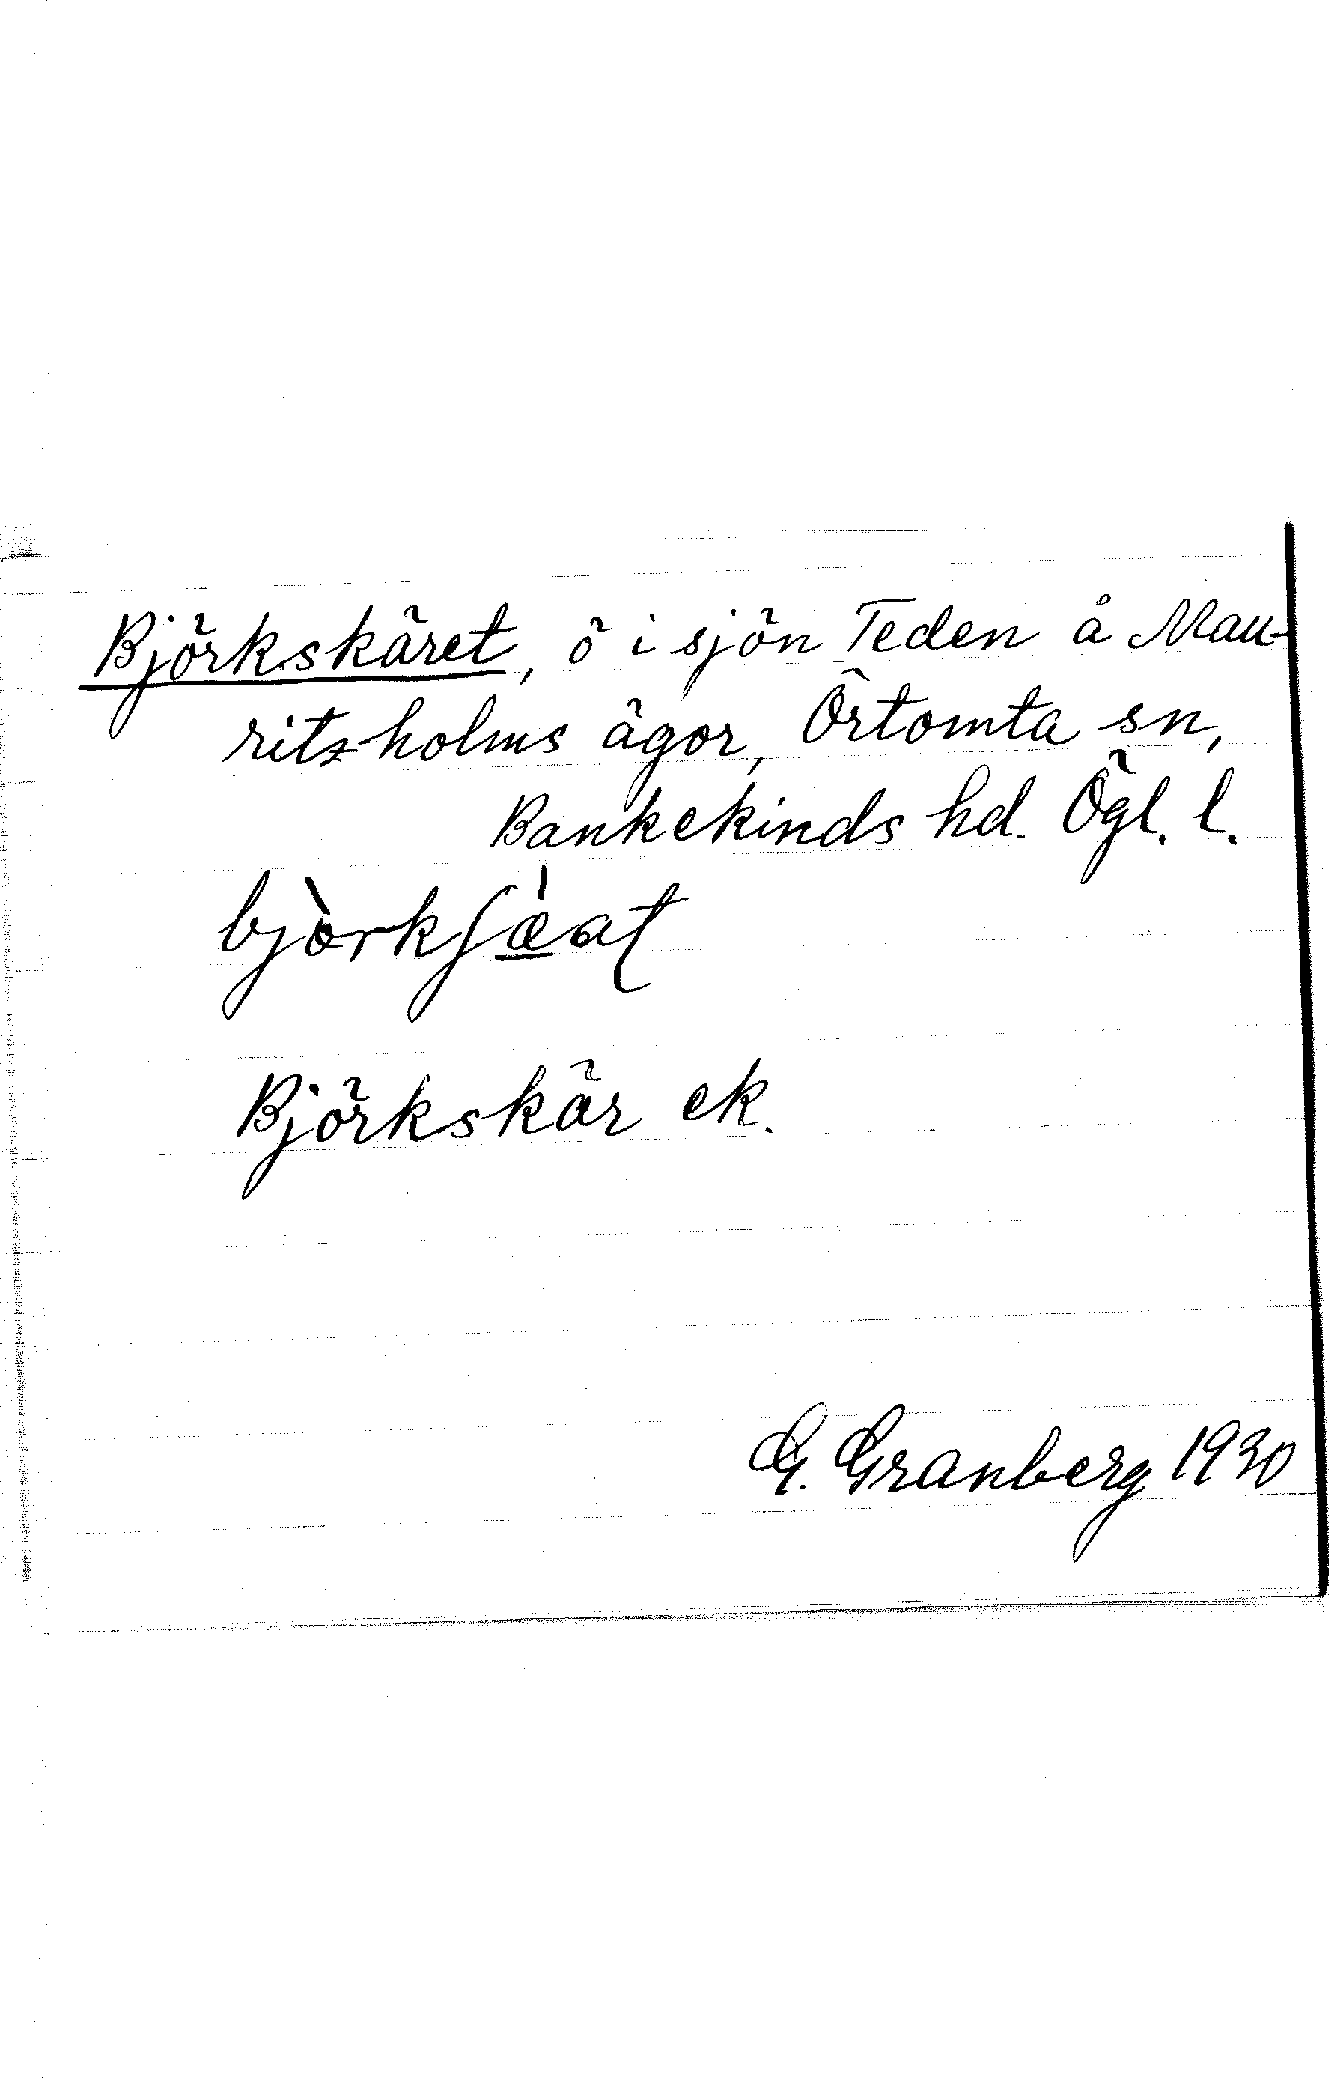 Björkskäret, ö i sjön Teden å Mau-
ritzholms ägor, Örtomta sn,
Bankekinds hd. Ögl. l.
bjò̀rkʃæ̀at
Björkskär ek.
G. Granberg 1930